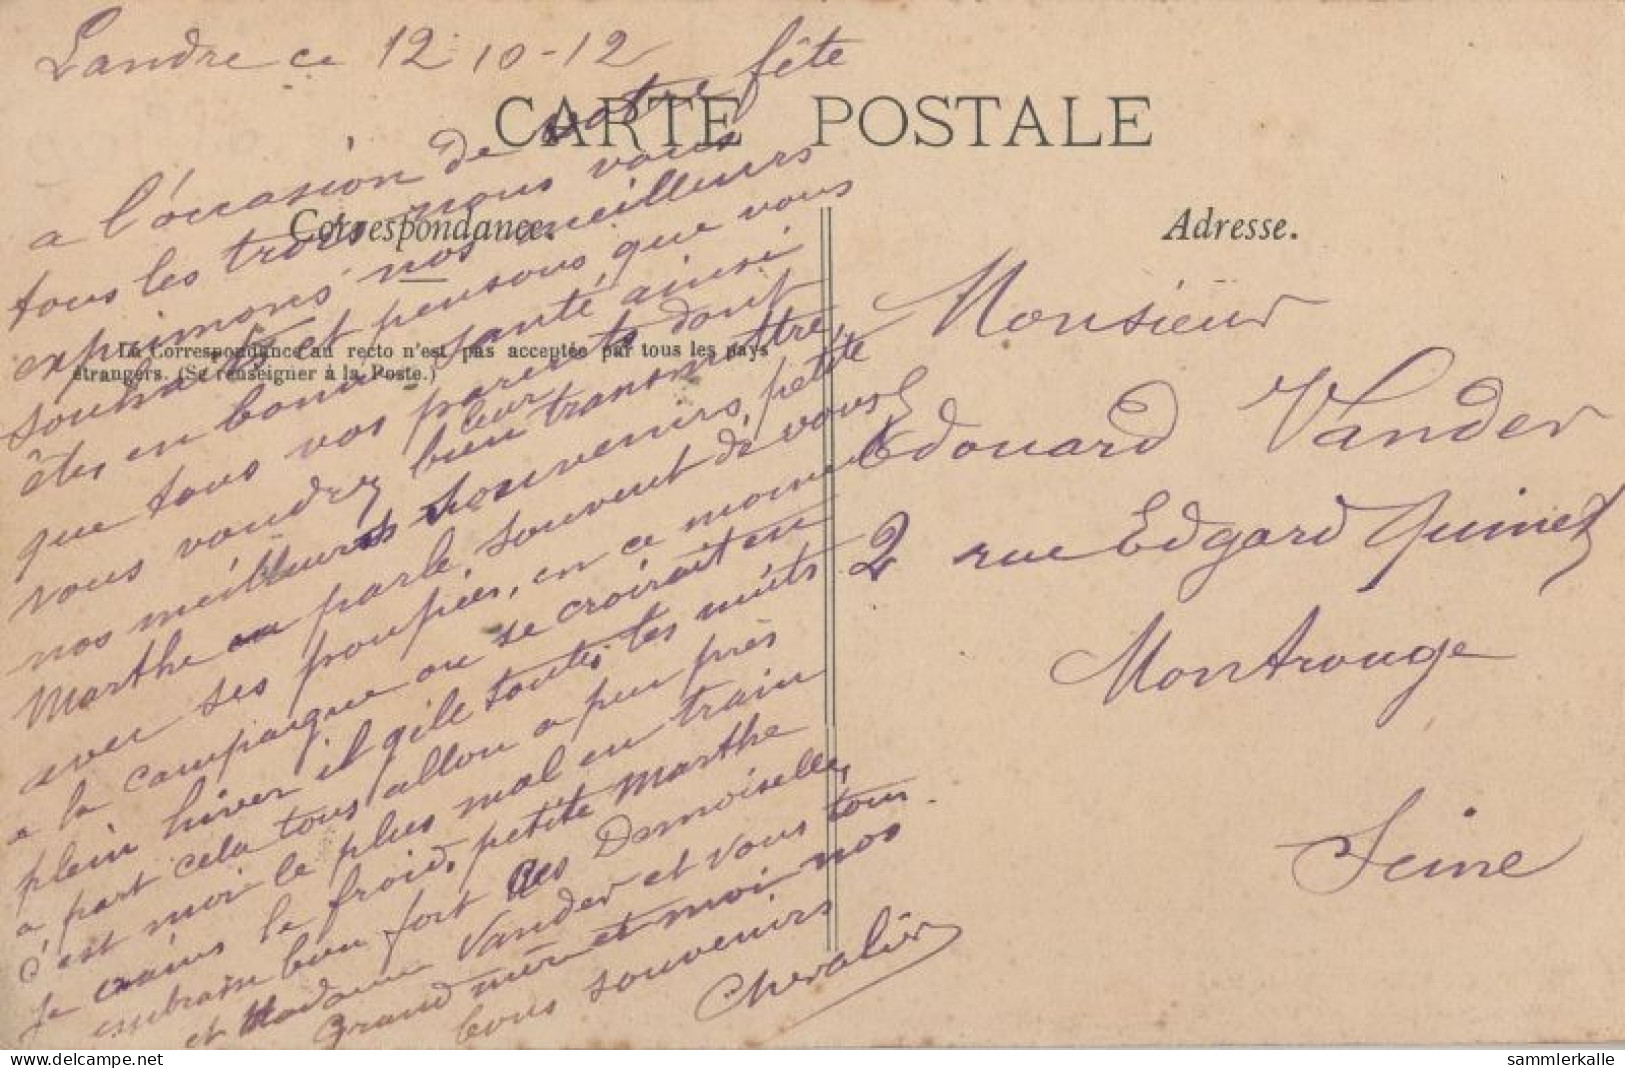 Landre ce 12 10-12
CARTE POSTALE
Correspondance.
Adresse.
La Correspondance au recto n'est pas acceptée par tous les pays
étrangers. (Se renseigner à la Poste.)
a l'occasion de votre fête
tous les trois nous vous
exprimons nos meilleurs
souhaits et pensons que vous
êtes en bonne santé ainsi
que tous vos parents dont
vous voudrez bien leur transmettre
nos meilleurs souvenirs, petite
Marthe parle souvent de vous
avec ses poupées, en ce moment
a la campagne on se croirait en
plein hiver il gèle toutes les nuits
a part cela tous allon a peu près
c'est moi le plus mal en train
je crains le froid, petite Marthe
embrasse bien fort les Demoiselles
et Madame Vander et vous tous
Grand mère et moi nos
bons souvenirs
Chevalier
Monsieur
Edouard Vander
2 rue Edgard Quinet
Montrouge
Seine
delcampe.net
sammlerkalle